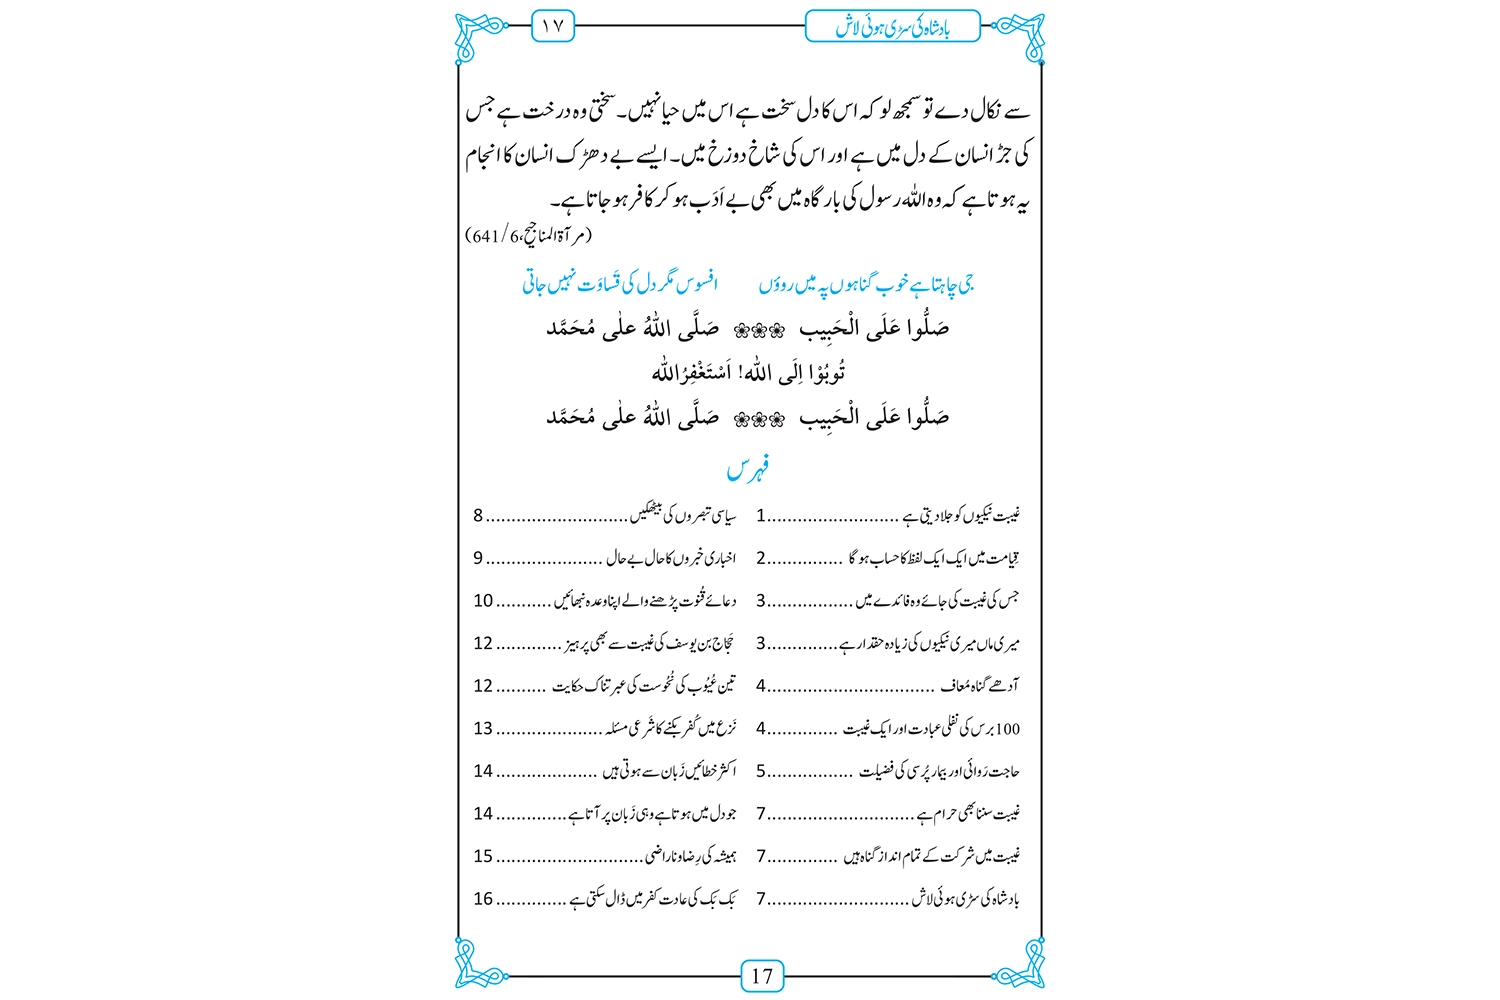 بادشاہ کی سڑی ہوئی لاش
۱۷
سے نکال دے تو سمجھ لو کہ اس کا دل سخت ہے اس میں حیا نہیں۔ سختی وہ درخت ہے جس
کی جڑ انسان کے دل میں ہے اور اس کی شاخ دوزخ میں۔ ایسے بے دھڑک انسان کا انجام
یہ ہوتا ہے کہ وہ اللہ رسول کی بارگاہ میں بھی بے اَدَب ہو کر کافر ہو جاتا ہے۔
(مرآۃ المناجیح، 6/641)
جی چاہتا ہے خوب گناہوں پہ میں روؤں افسوس مگر دل کی قَساوَت نہیں جاتی
صَلُّوا عَلَی الْحَبِیب ❀❀❀ صَلَّی اللّٰہُ علٰی مُحَمَّد
تُوبُوْا اِلَی اللّٰہ! اَسْتَغْفِرُاللّٰہ
صَلُّوا عَلَی الْحَبِیب ❀❀❀ صَلَّی اللّٰہُ علٰی مُحَمَّد
فہرس
غیبت نیکیوں کو جلا دیتی ہے .......................... 1
قِیامت میں ایک ایک لفظ کا حساب ہوگا ............... 2
جس کی غیبت کی جائے وہ فائدے میں ................. 3
میری ماں میری نیکیوں کی زیادہ حقدار ہے .............. 3
آدھے گناہ مُعاف ................................. 4
100 برس کی نفلی عبادت اور ایک غیبت .............. 4
حاجت رَوائی اور بیمار پُرسی کی فضیلت ................. 5
غیبت سننا بھی حرام ہے ............................. 7
غیبت میں شرکت کے تمام انداز گناہ ہیں .............. 7
بادشاہ کی سڑی ہوئی لاش ............................ 7
سیاسی تبصروں کی بیٹھکیں ............................ 8
اخباری خبروں کا حال بے حال ....................... 9
دعائے قُنوت پڑھنے والے اپنا وعدہ نبھائیں ........... 10
حَجّاج بن یوسف کی غیبت سے بھی پرہیز ............. 12
تین عُیُوب کی نُحُوست کی عبرتناک حکایت .......... 12
نَزع میں کُفر بکنے کا شَرعی مسئلہ ..................... 13
اکثر خطائیں زَبان سے ہوتی ہیں .................... 14
جو دل میں ہوتا ہے وہی زَبان پر آتا ہے .............. 14
ہمیشہ کی رِضا و ناراضی ............................. 15
بَک بَک کی عادت کفر میں ڈال سکتی ہے .............. 16
17